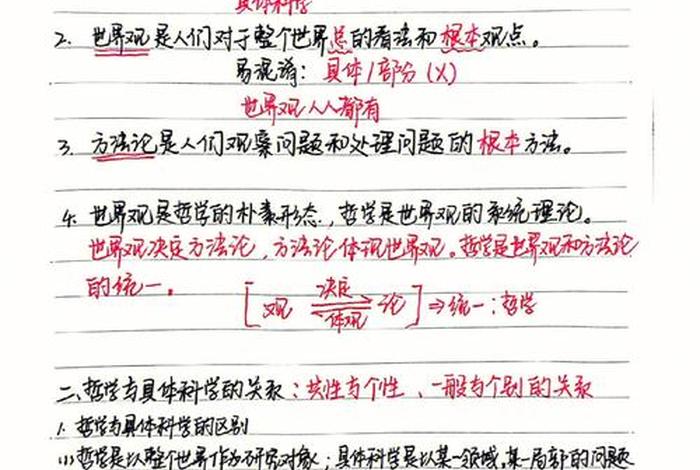 具体科学
2. 世界观是人们对于整个世界总的看法和根本观点。
易混淆：具体/部分（X）
世界观人人都有
3. 方法论是人们观察问题和处理问题的根本方法。
4. 世界观是哲学的朴素形态，哲学是世界观的系统理论。
世界观决定方法论，方法论体现世界观。哲学是世界观和方法论
的统一。
[观 决定 体现 论] ⇒统一：哲学
二、哲学与具体科学的关系：共性与个性、一般与个别的关系
1. 哲学与具体科学的区别
(1) 哲学是以整个世界作为研究对象；具体科学是以某一领域，某一局部的问题